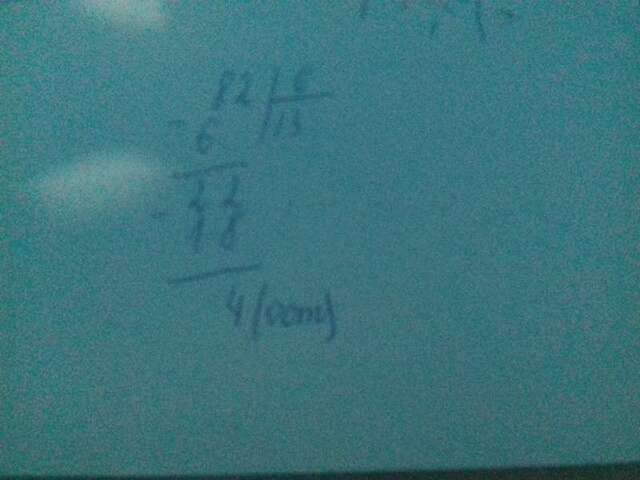 82 | 6
- 6 | 13
22
- 18
4 (ост)